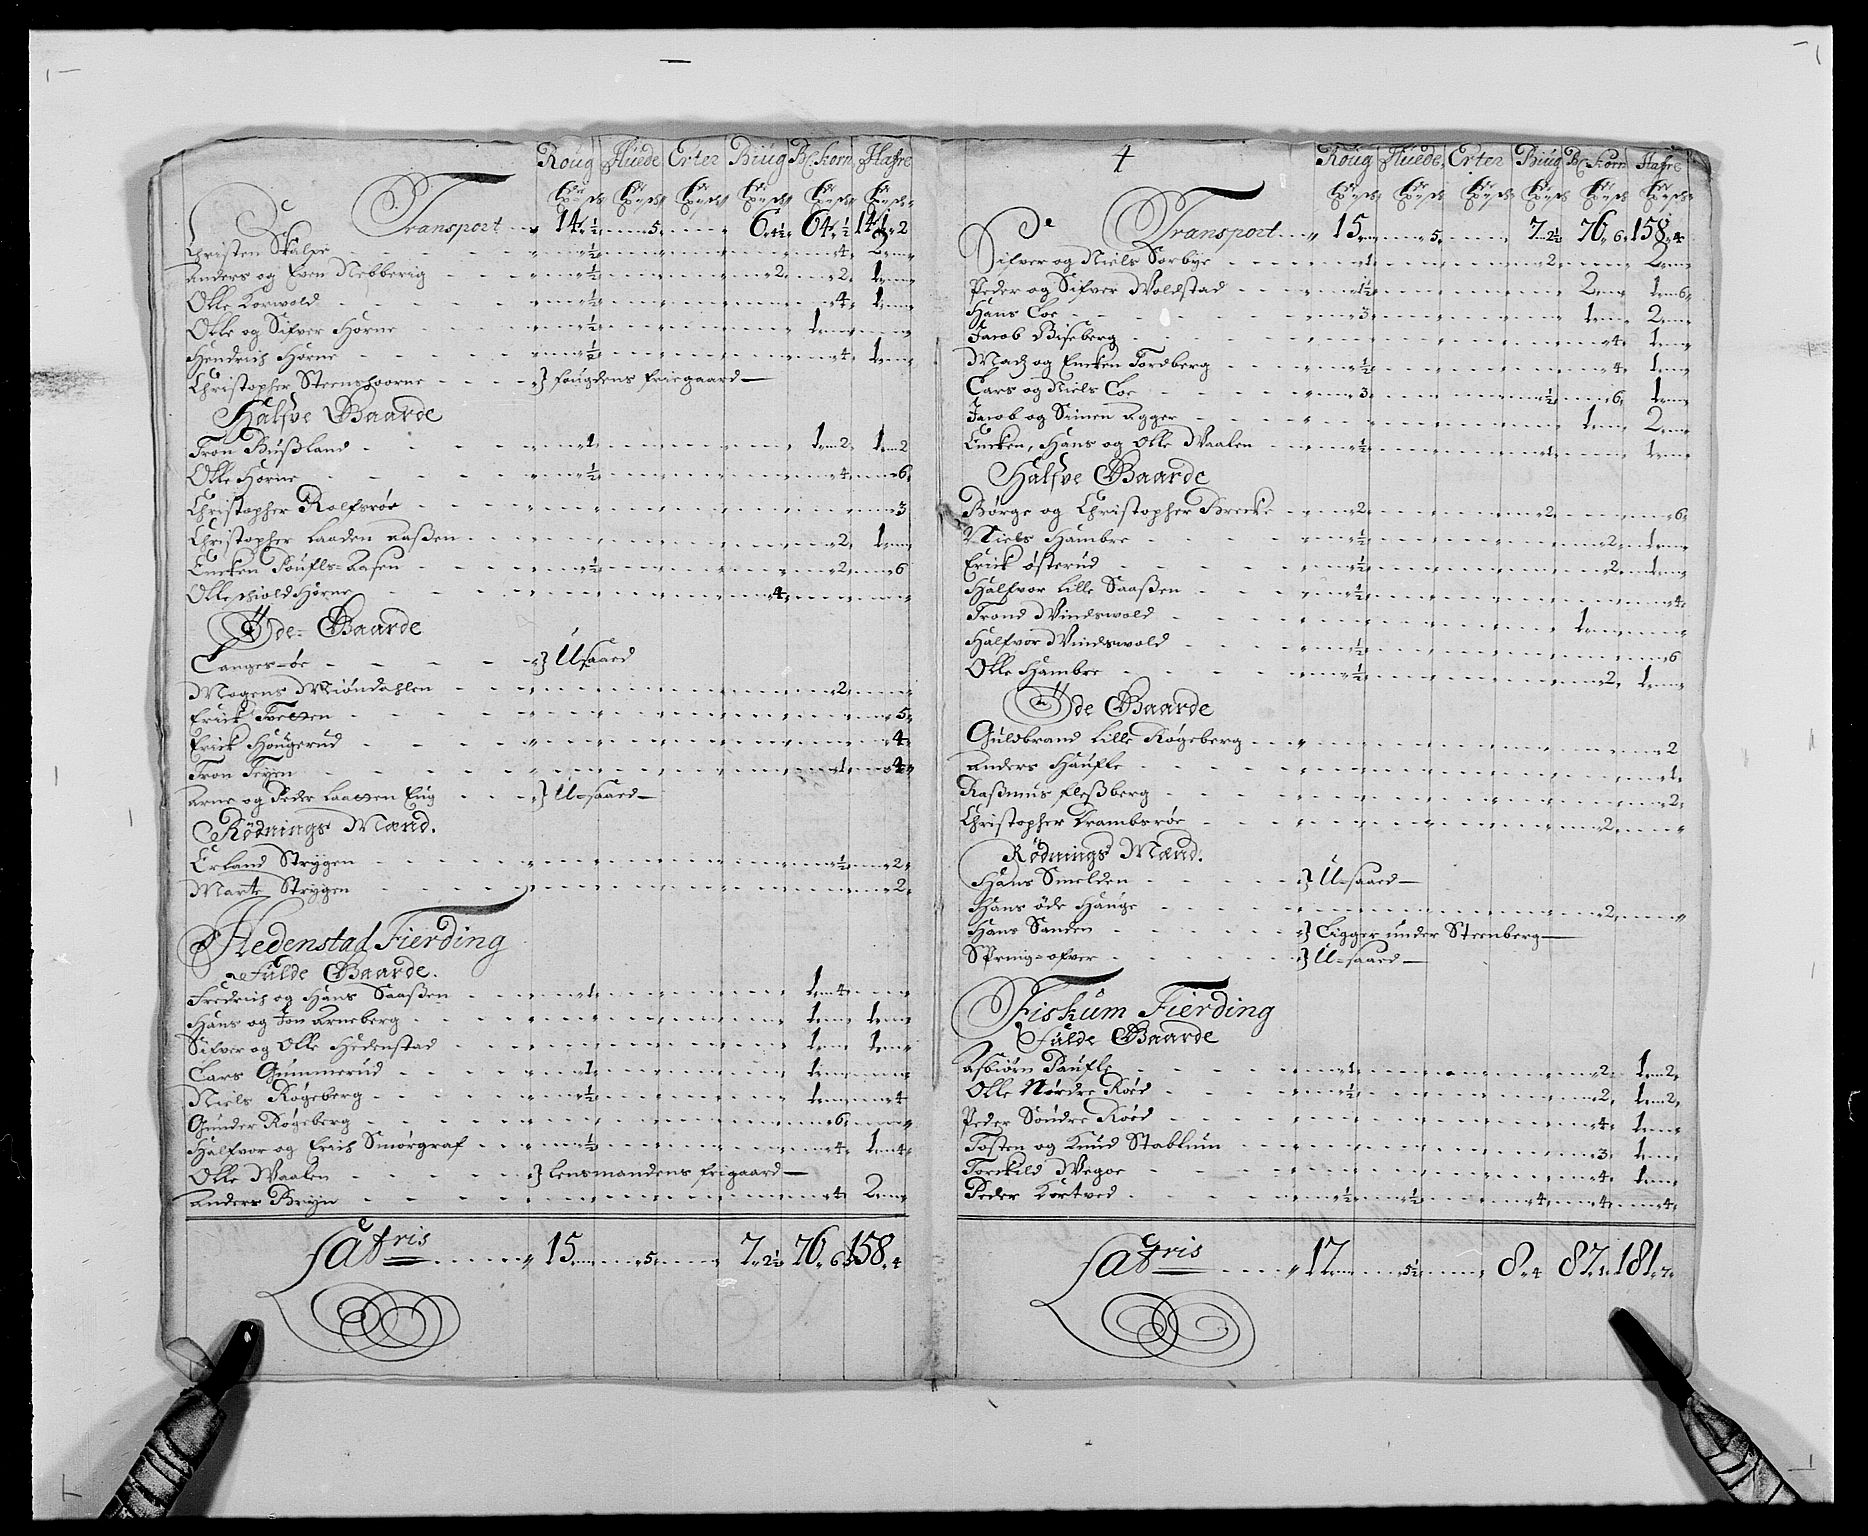 Roug Huede Erter Biug Bl: korn Hafre
Transport 14 ½ 5 6 4½ 64 ½ 141 2
Christen Skalße ½ 4 2
Anders og Even Nebberig ½ 2 2 1
Olle Korwold ½ 4 1
Olle og Sifver Horne ½ 1
Hendrich Horne ½ 4 1
Christopher Steenshorne } fougdens friegaard
Halfve Gaarde
Tron Bußland 1 1 2 1 2
Olle Horne ½ 4 6
Christopher Rolfsrøe 3
Christopher Laaden aaßen 2 1
Encken Poufls-Aasen ½ 2 6
Olle Horne 4
Øde Gaarde
Langes-øe } Usaaed
Mogens Miøndahlen 2
Erick Tvetten 5
Erick Hougerud 4
Tron Teyen 1 4
Arne og Peder Laaeren Eng } U-saaed
Rødnings Mænd.
Erland Strygen ½ 2
Marte Strygen 2
Hedenstad Fierding
Fulde Gaarde.
Fredrich og Hans Saaßen 1 1 4
Hans og Jon Arneberg 1 1
Sifver og Olle Hedenstad 1 1
Lars Gummerud 1 1
Niels Røgeberg ½ 1 4
Gunder Røgeberg 6
Halfvor og Erich Smørgraf ½ 4 1 4
Olle Waalen } Lensmandens frigaard
Anders Bryn 4 2
Lateris 15 5 7 2½ 76 6 158 4
4
Roug Huede Erter Biug Bl: korn Hafre
Transport 15 5 7 2½ 76 6 158 4
Sifver og Niels Sorbye 1 2 2
Peder og Sifver Woldstad 1½ 2 1 6
Hans Loe 3 1 2
Jacob Biseberg 4 1
Madz og Encken Fordberg ½ 4 1
Lars og Niels Loe 3 ½ 6 1
Jacob og Simen Agger 1 2
Encken, Hans og Olle Waalen ½ 1 1
Halfve Gaarde
Børge og Christopher Brecke 2 2 6
Niels Hambre ½ 2 1
Erick østerud ½ 2 1
Halfvor Lille Saaßen ½ 4
Trond Windswold 1
Halfvor Windswold ½ 6
Olle Hambre ½ 2 1
Øde Gaarde
Guldbrand Lille Røgeberg 2
Anders Haufle 1
Raßmus fleßberg 2
Christopher Krambsrøe 2
Rødnings Mænd.
Hans Smelden } U-saaed
Hans øde Hauge 2
Hans Sanden } Ligger under Steenberg
Spring-ofver } U-saaed
Fiskum Fierding
Fulde Gaarde
Asbiørn Paufle 1 2 1 2
Olle Nørdre Roed ½ 2 1 2
Peder Søndre Roed 4 1
Tosten og Knud Stablum 3 1
Torckild Wegoe 4 1
Peder Kortved ½ ½ 4 4 4
Lateris 17 5½ 8 4 87 1 181 7